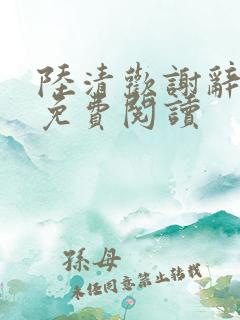 陸清歡謝辭
免費閱讀
孫母
未經同意禁止轉載